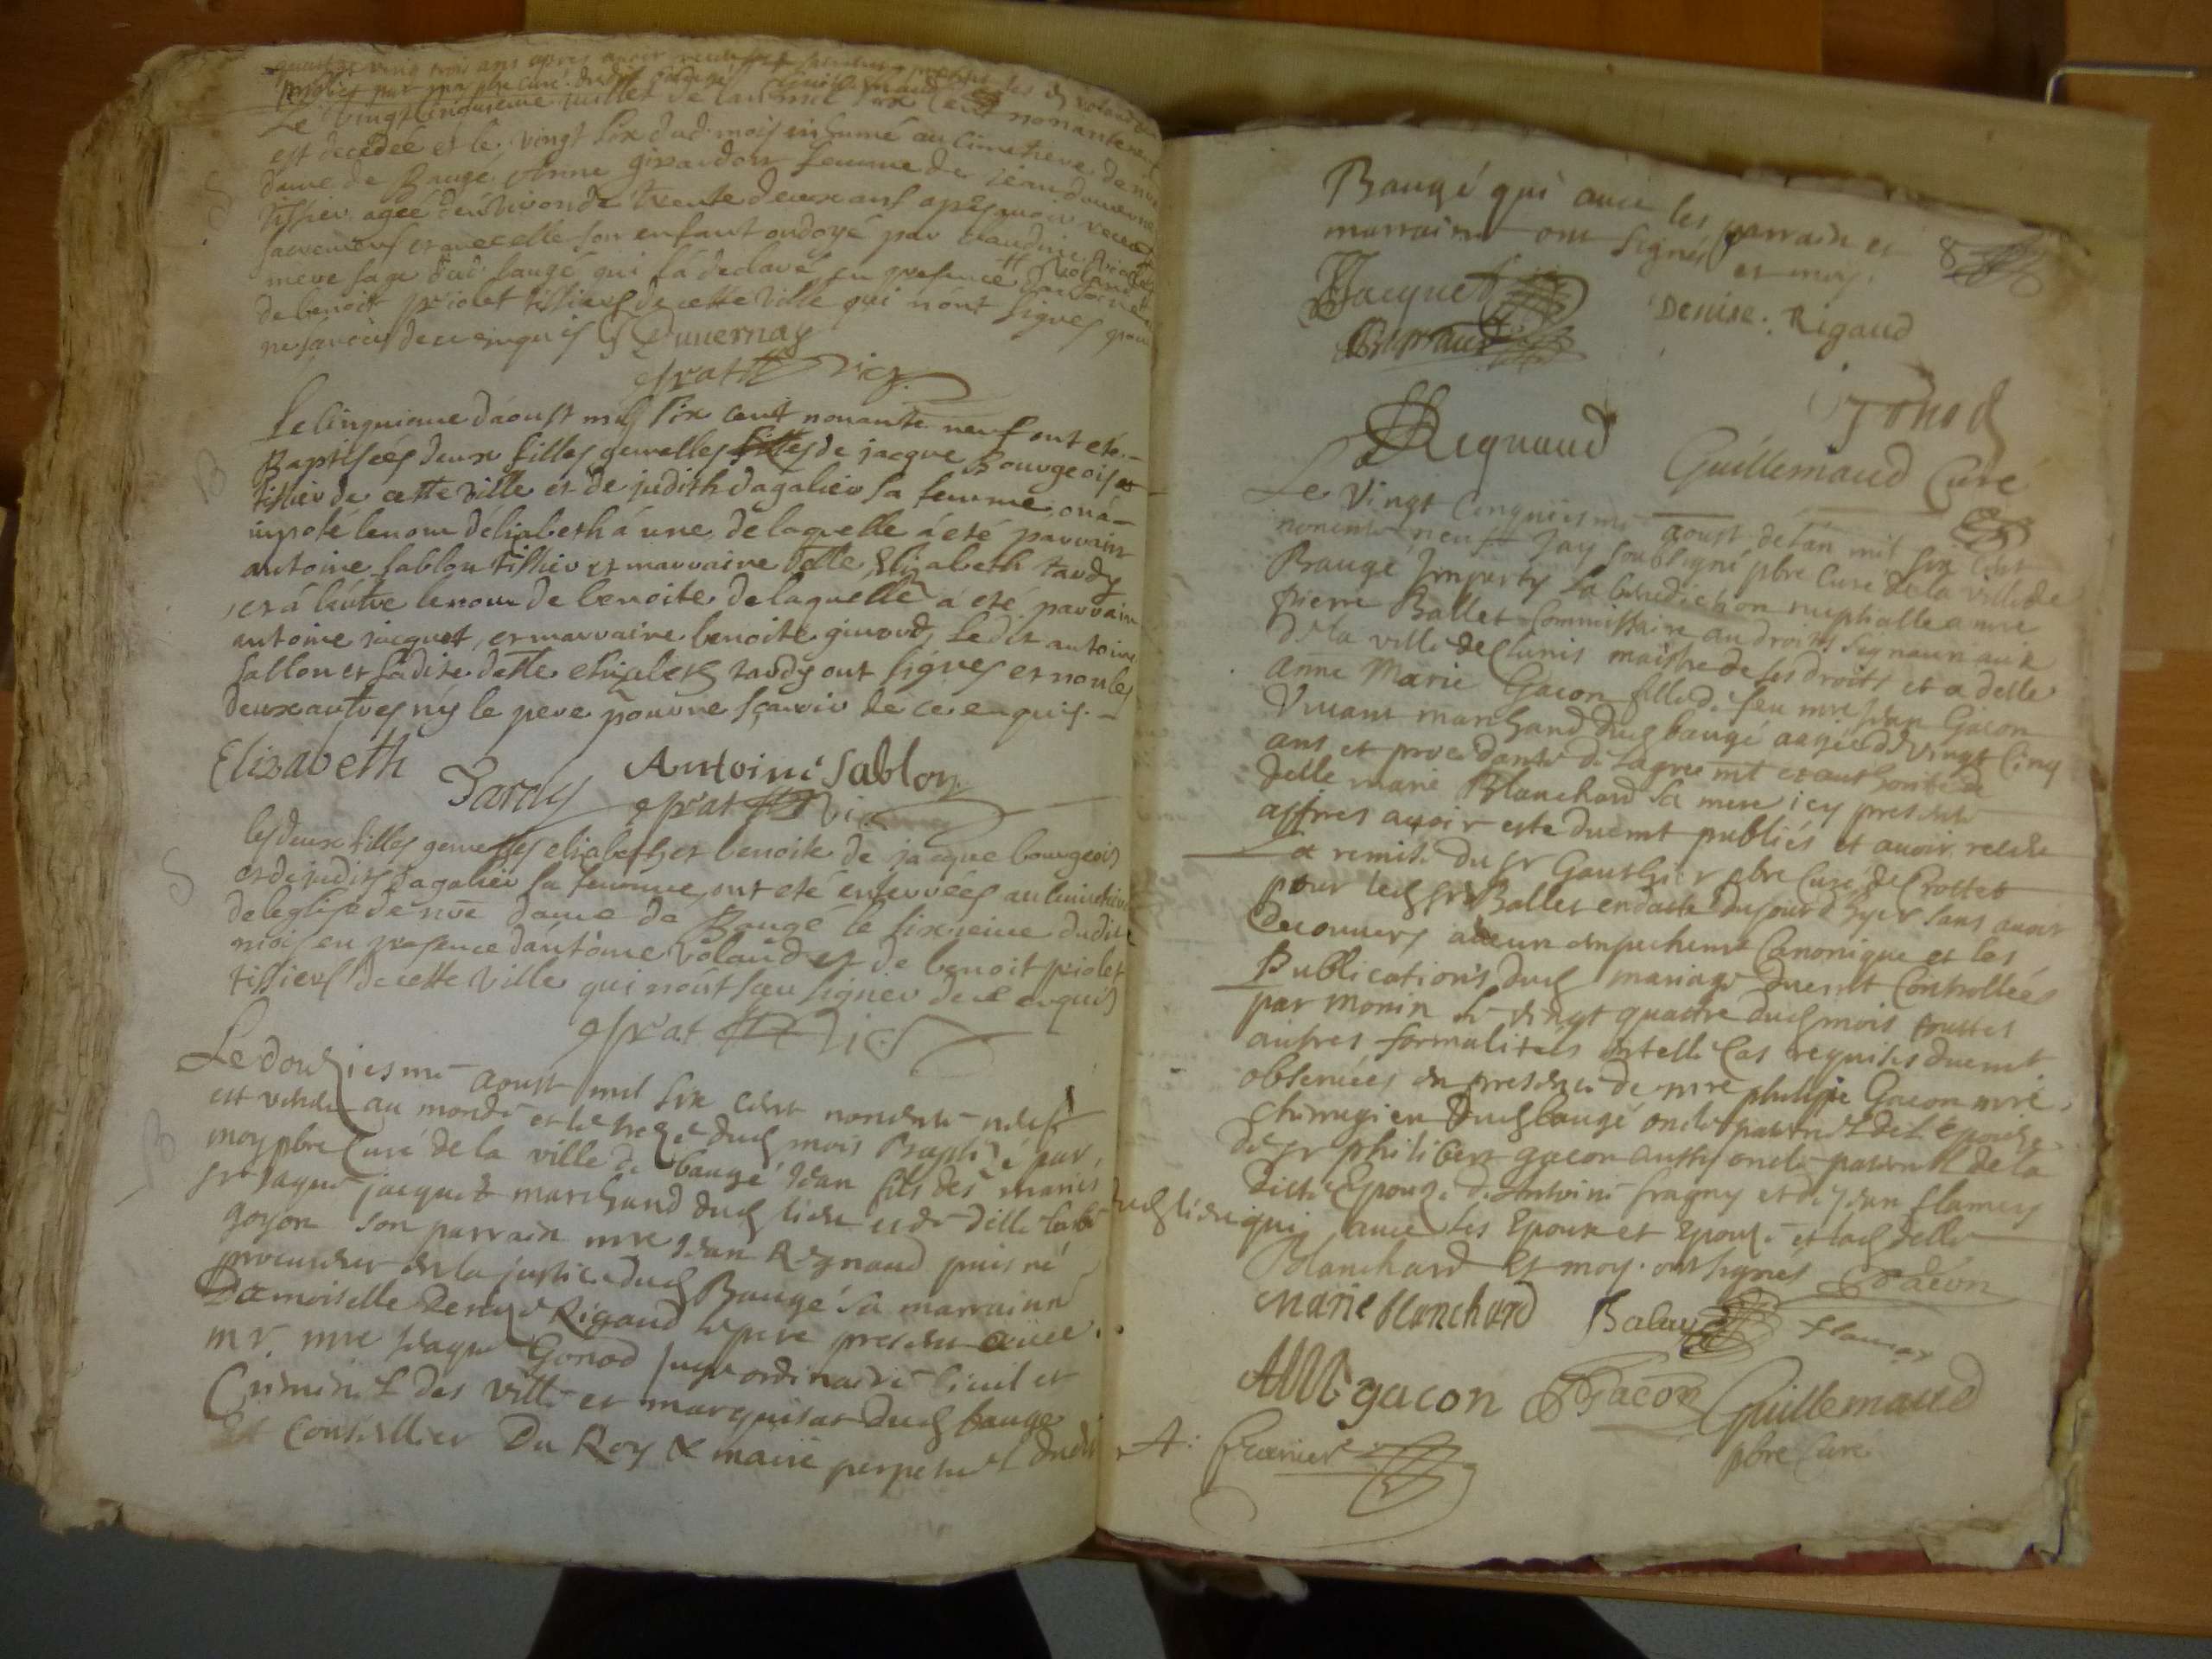 quattre vingt trois ans apres avoir
Le vingt cinquieme juillet de lan mil six cent nonante neuf
est decedée et le vingt six dud. mois inhumé au cimetiere de nre
dame de Baugé Anne girardon femme de jean duvernay
tissier agée denviron de trente deux ans apres avoir receu
sacremens et avec elle son enfant ondoyé par claudine
mere sage dud. baugé qui l'a declaré en presence
de benoit priolet tissiers de cette ville qui n'ont signés pour
ne savoir de ce enquis Duvernay
prat vic.
Le cinquieme d'aoust mil six cent nonante neuf ont eté
Baptisées deux filles gemelles filles de jacque Bourgeois
tissier de cette ville et de judith dagalier sa femme, on a
imposé le nom d'elizabeth a une de laquelle a eté parrain
antoine sablon tissier et marraine delle Elizabeth tardy
et a l'autre le nom de benoite de laquelle a eté parrain
antoine jacquet, et marraine benoite girard, ledit antoine
sablon et ladite delle elizabeth tardy ont signés et non les
deux autres ny le pere pour ne sçavoir de ce enquis.
Elizabeth Tardy Antoine Sablon
prat vic.
les deux filles gemelles elizabeth et benoite de jacque bourgeois
et de judith dagalier sa femme ont eté enterrées au cimetiere
de leglise de nre dame de Baugé le sixieme dudit
mois en presence d'antoine voland et de benoit priolet
tissiers de cette ville qui n'ont sceu signer de ce enquis
prat vic.
Le douziesme aoust mil six cent nonente neuf
est venu au monde et le treze dud mois Baptisé par
moy pbre Curé de la ville de baugé Jean fils des mariés
sr jaque jacquet marchand dud lieu et de delle
goyon son parrain mre Jean Regnaud puisné
procureur en la justice dud Baugé sa marraine
Damoiselle Denize Rigaud le pere present avec
mr. mre Jaque Gonod juge ordinaire Civil et
Criminel des ville et marquisat dud bauge
Et Conseiller Du Roy & maire perpetuel dudit
Baugé qui avec les parrain et
marraine ont signés et moy. 8
Jacquet Denise. Rigaud
Regnaud Gonod
Guillemaud Curé
Le Vingt Cinquiesme aoust de lan mil six cent
nonente neuf Jay soubsigné pbre Curé de la ville de
Baugé Imparty la benediction nuptialle a mre
pierre Ballet Commissaire au droits seigneuriaux
de la ville de Clunis maistre de ses droits et a delle
Anne Marie Gacon fille de feu mre Jean Gacon
Vivant marchand dud baugé aagée de Vingt Cinq
ans et procedante de lagrement et authorité de
delle marie Blanchard sa mere icy presente
apres avoir esté duemt publiés et avoir receu
la remise du sr Gauthier pbre Curé de Crottet
pour led sr Ballet en datte du jourd'hyer sans avoir
decouvers aucun empechemt Canonique et les
Publications dud mariage duemt Controllées
par monin le vingt quatre dud mois touttes
autres formalites en telle Cas requises duemt
observées en presence de mre philippe Gacon mre
Chirurgien dud baugé oncle paternel de l'epouse
de sr philibert gacon aussy oncle paternel de la
dicte Epouze d'Antoine fragny et de Jean flamery
dud lieu qui avec les Epoux et Epouse et lad delle
Blanchard Et moy. ont signés Gacon
Marie blanchard Balay flamery
AM gacon Gacon Guillemaud
pbre Curé